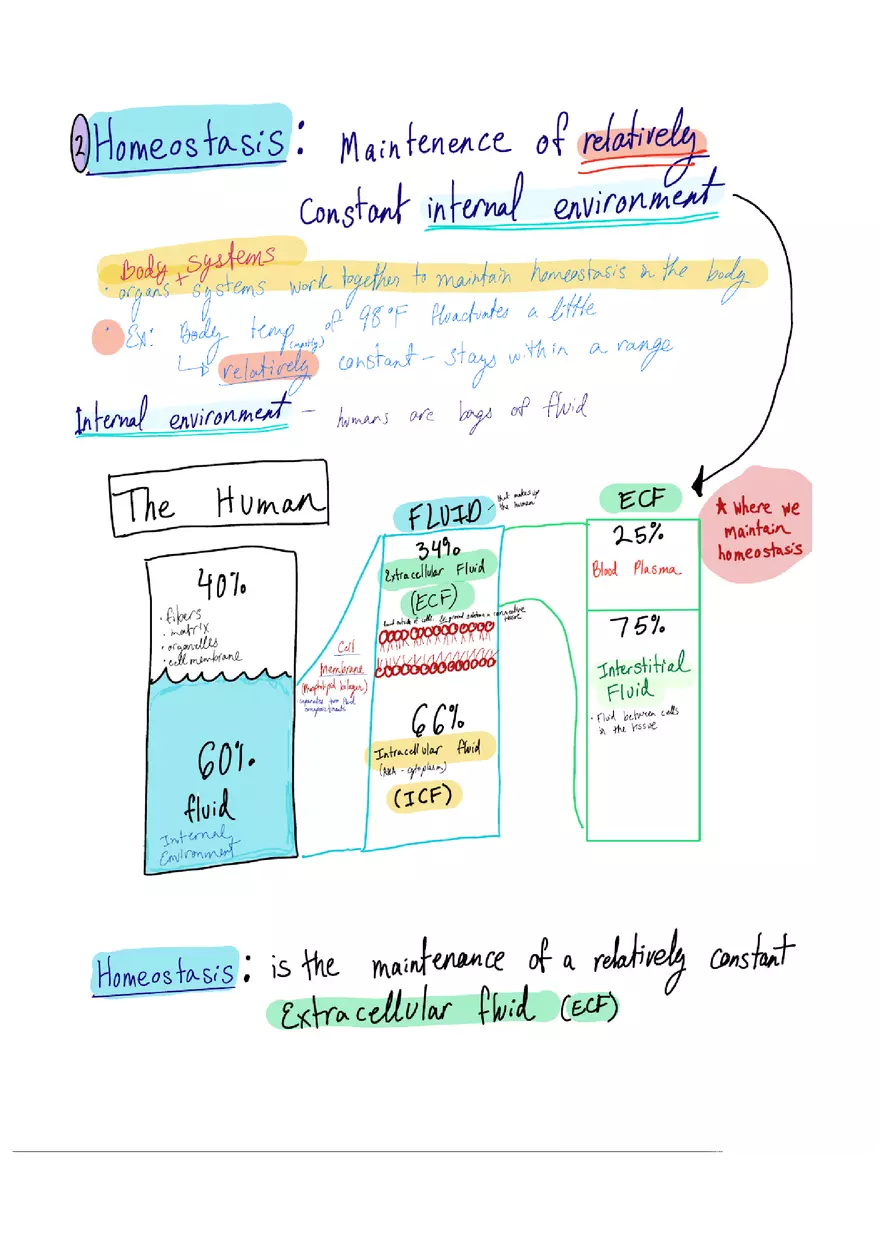 2 Homeostasis: Maintenence of relatively
Constant internal environment
Body systems
• organs + systems work together to maintain homeostasis in the body
• Ex: Body temp of 98°F fluactuates a little
(mostly)
↳ relatively constant - stays within a range
Internal environment - humans are bags of fluid
The Human
40%
• fibers
• matrix
• organelles
• cell membrane
60%
fluid
Internal
Environment
FLUID - that makes up
the human
34%
Extracellular Fluid
(ECF)
found outside of cells. Ex: ground substance in connective
tissue
Cell
Membrane
(Phospholipid bilayer)
- separates two fluid
compartments
66%
Intracellular fluid
(AKA - cytoplasm)
(ICF)
ECF
25%
Blood Plasma
75%
Interstitial
Fluid
• Fluid between cells
in the tissue
★ Where we
maintain
homeostasis
Homeostasis: is the maintenance of a relatively constant
Extracellular fluid (ECF)